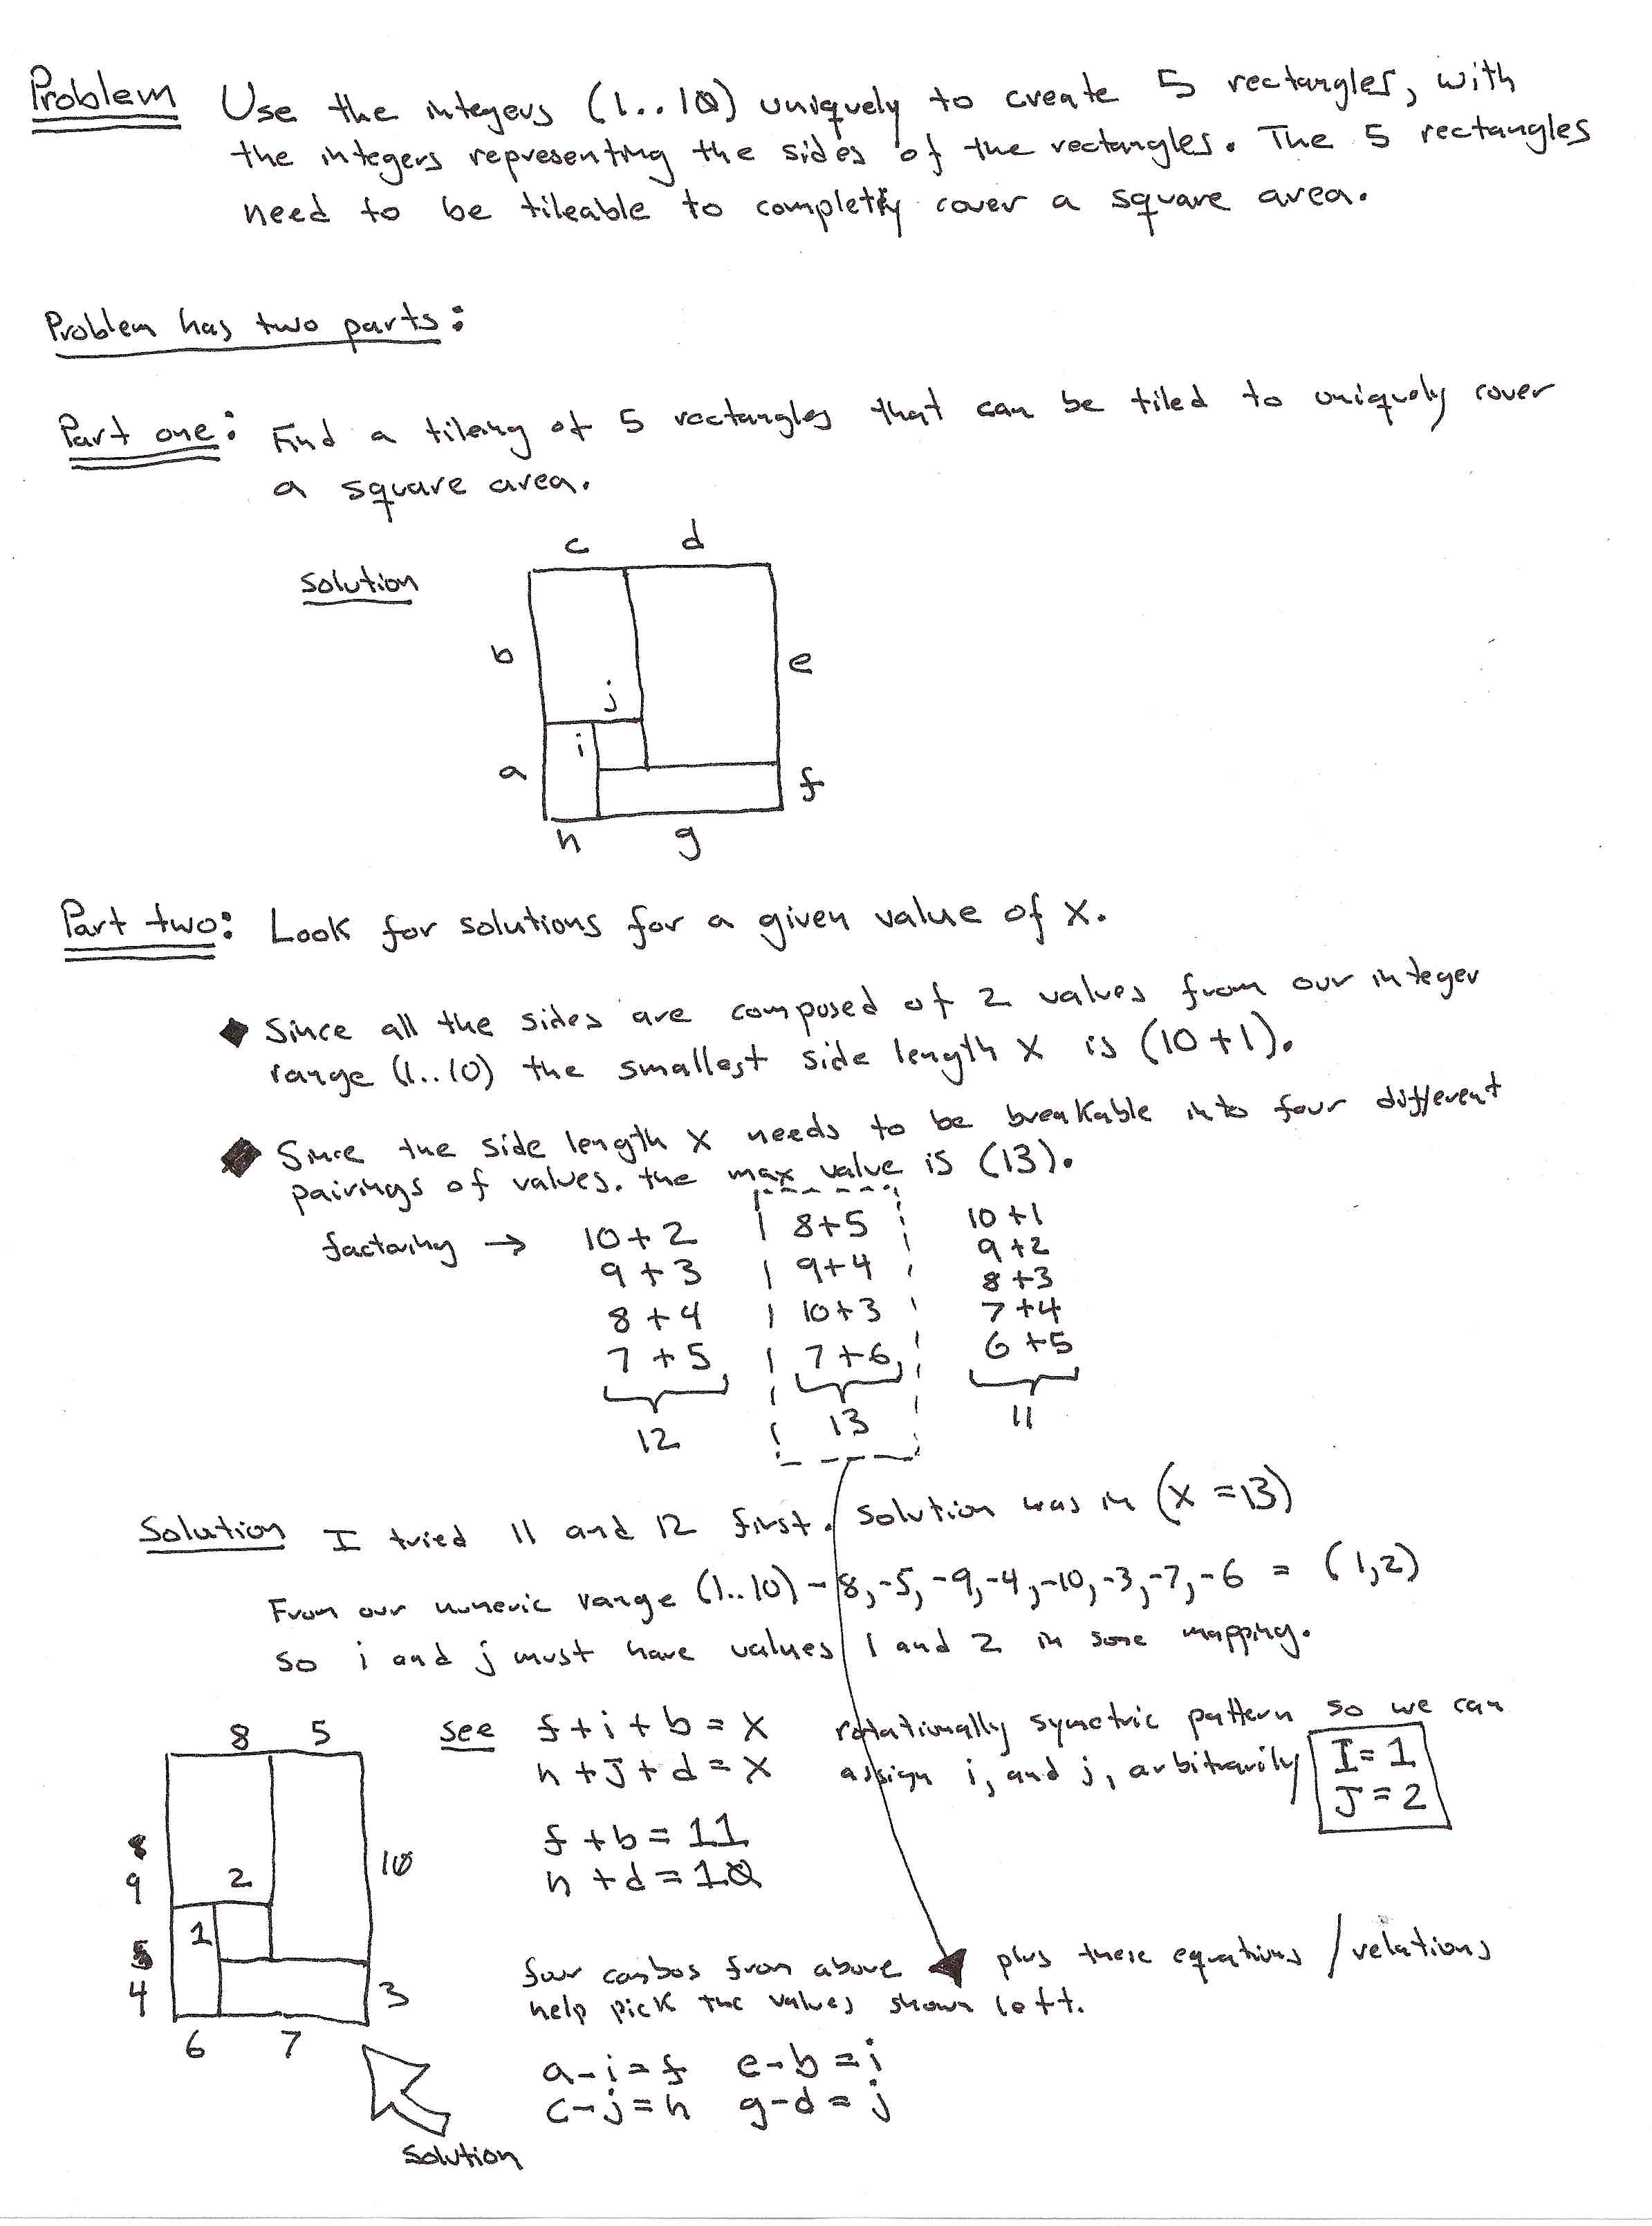 Problem Use the integers (1..10) uniquely to create 5 rectangles, with
the integers representing the sides of the rectangles. The 5 rectangles
need to be tileable to completly cover a square area.
Problem has two parts:
Part one: Find a tileing of 5 rectangles that can be tiled to uniquely cover
a square area.
Solution
c d
b
j
e
i
a
f
h g
Part two: Look for solutions for a given value of X.
◆ Since all the sides are composed of 2 values from our integer
range (1..10) the smallest side length X is (10+1).
◆ Since the side length X needs to be breakable into four different
pairings of values. the max value is (13).
factoring → 10+2 8+5 10+1
9+3 9+4 9+2
8+4 10+3 8+3
7+5 7+6 7+4
6+5
12 13 11
Solution I tried 11 and 12 first. Solution was in (X=13)
From our numeric range (1..10) -8,-5,-9,-4,-10,-3,-7,-6 = (1,2)
so i and j must have values 1 and 2 in some mapping.
8 5
see f+i+b=X rotationally symetric pattern so we can
h+J+d=X assign i, and j, arbitrarily
I=1
J=2
f+b=11
h+d=10
8
9
2
10
1
5
4
3
6 7
four combos from above plus these equations/relations
help pick the values shown left.
a-i=f e-b=i
c-j=h g-d=j
Solution